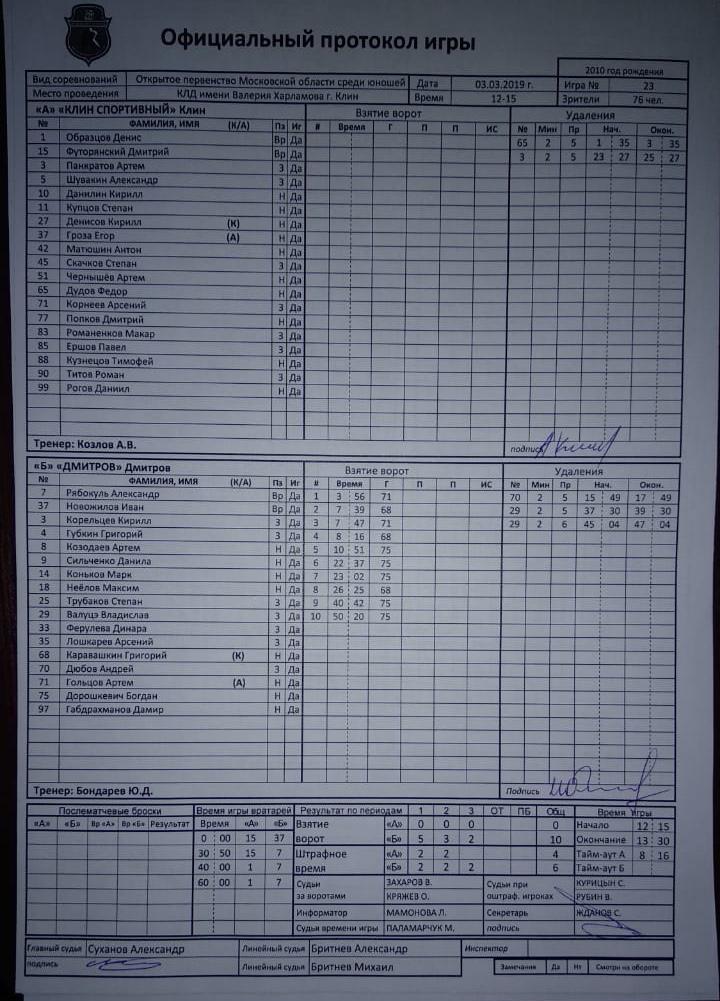 Официальный протокол игры
2010 год рождения
Вид соревнований Открытое первенство Московской области среди юношей Дата 03.03.2019 г. Игра № 23
Место проведения КЛД имени Валерия Харламова г. Клин Время 12-15 Зрители 76 чел.
«А» «КЛИН СПОРТИВНЫЙ» Клин Взятие ворот Удаления
№ ФАМИЛИЯ, ИМЯ (К/А) Пз Иг # Время Г П П ИС № Мин Пр Нач. Окон.
1 Образцов Денис Вр Да 65 2 5 1 35 3 35
15 Футорянский Дмитрий Вр Да 3 2 5 23 27 25 27
3 Панкратов Артем З Да
5 Шувакин Александр З Да
10 Данилин Кирилл Н Да
11 Купцов Степан Н Да
27 Денисов Кирилл (К) Н Да
37 Гроза Егор (А) Н Да
42 Матюшин Антон Н Да
45 Скачков Степан З Да
51 Чернышёв Артем Н Да
65 Дудов Федор Н Да
71 Корнеев Арсений З Да
77 Попков Дмитрий Н Да
83 Романенков Макар З Да
85 Ершов Павел З Да
88 Кузнецов Тимофей Н Да
90 Титов Роман З Да
99 Рогов Даниил Н Да
Тренер: Козлов А.В. подпись
«Б» «ДМИТРОВ» Дмитров Взятие ворот Удаления
№ ФАМИЛИЯ, ИМЯ (К/А) Пз Иг # Время Г П П ИС № Мин Пр Нач. Окон.
7 Рябокуль Александр Вр Да 1 3 56 71 70 2 5 15 49 17 49
37 Новожилов Иван Вр Да 2 7 39 68 29 2 5 37 30 39 30
3 Корельцев Кирилл З Да 3 7 47 71 29 2 6 45 04 47 04
4 Губкин Григорий З Да 4 8 16 68
8 Козодаев Артем Н Да 5 10 51 75
9 Сильченко Данила Н Да 6 22 37 75
14 Коньков Марк Н Да 7 23 02 75
18 Неёлов Максим Н Да 8 26 25 68
25 Трубаков Степан З Да 9 40 42 75
29 Валуцэ Владислав З Да 10 50 20 75
33 Ферулева Динара З Да
35 Лошкарев Арсений З Да
68 Каравашкин Григорий (К) Н Да
70 Дюбов Андрей З Да
71 Гольцов Артем (А) Н Да
75 Дорошкевич Богдан Н Да
97 Габдрахманов Дамир Н Да
Тренер: Бондарев Ю.Д. Подпись
Послематчевые броски Время игры вратарей Результат по периодам 1 2 3 ОТ ПБ Общ Время Игры
«А» «Б» Вр «А» Вр «Б» Результат Время «А» «Б» Взятие «А» 0 0 0 0 Начало 12 15
0 00 15 37 ворот «Б» 5 3 2 10 Окончание 13 30
30 50 15 7 Штрафное «А» 2 2 4 Тайм-аут А 8 16
40 00 1 7 время «Б» 2 2 2 6 Тайм-аут Б
60 00 1 7 Судьи ЗАХАРОВ В. Судьи при КУРИЦЫН С.
за воротами КРЯЖЕВ О. оштраф. игроках РУБИН В.
Информатор МАМОНОВА Л. Секретарь ЖДАНОВ С.
Судья времени игры ПАЛАМАРЧУК М. подпись
Главный судья Суханов Александр Линейный судья Бритнев Александр Инспектор
подпись Линейный судья Бритнев Михаил Замечания Да Нт Смотри на обороте